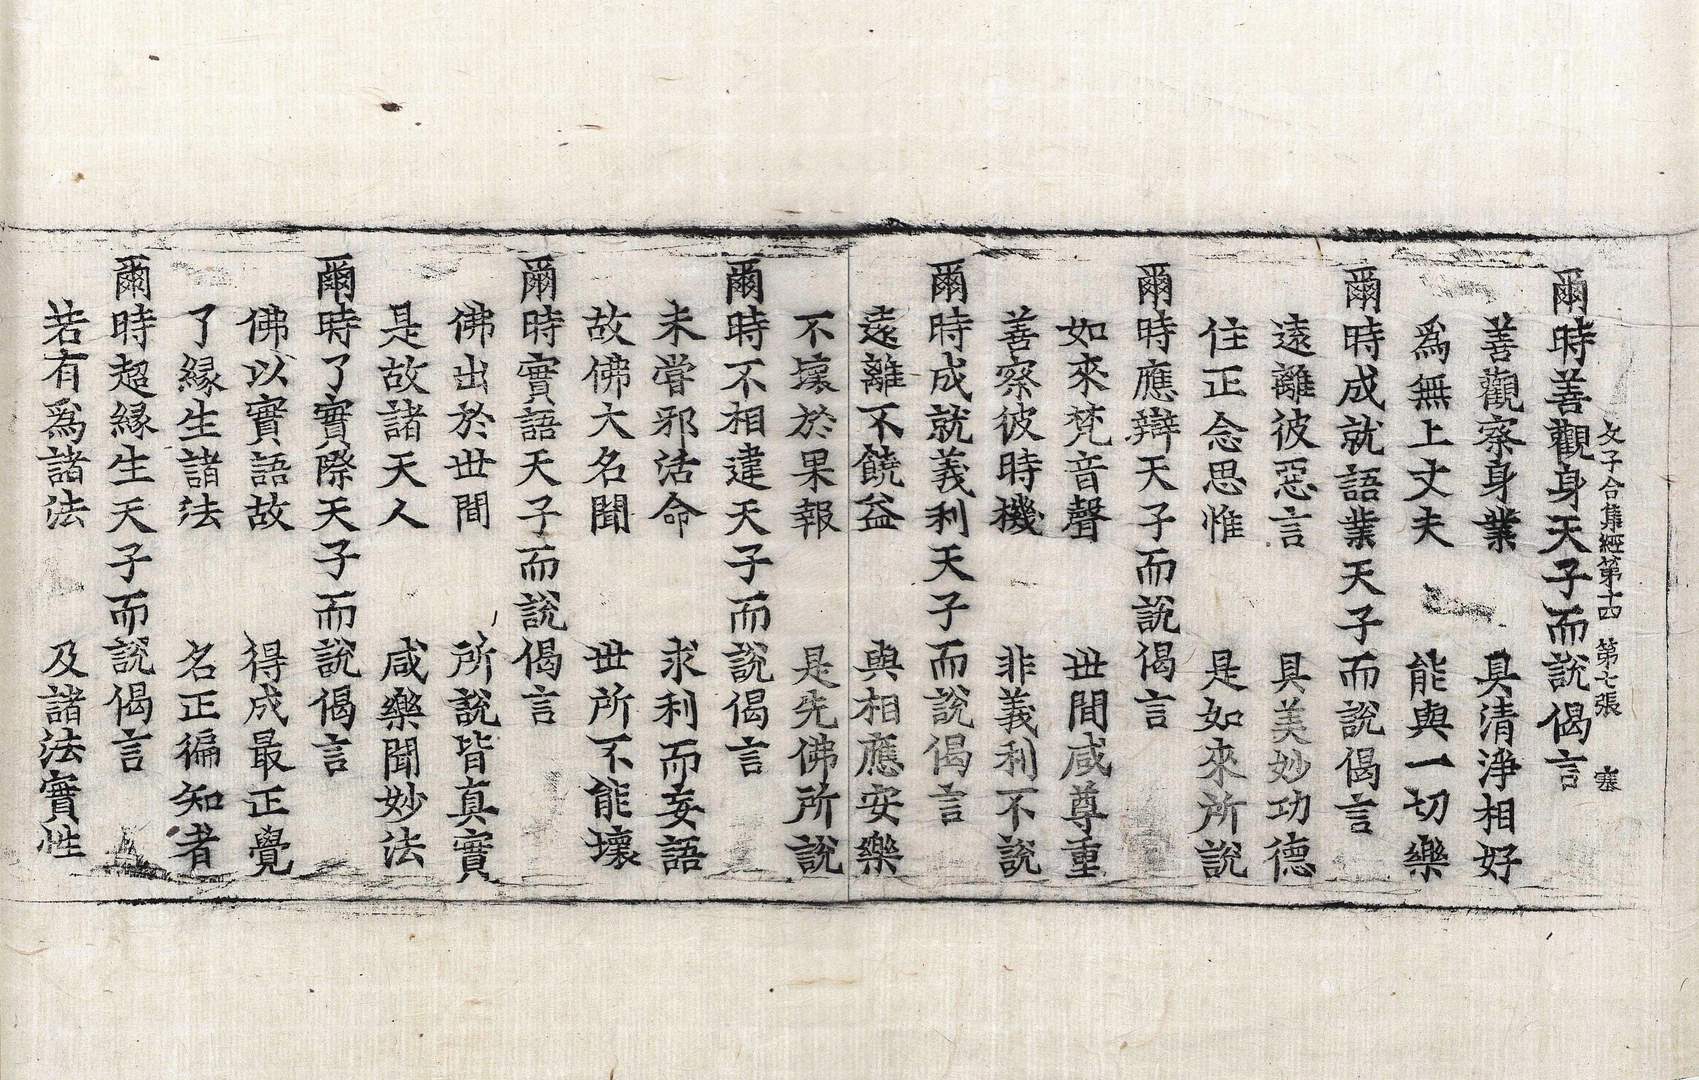 父子合集經第十四　第七張　塞
爾時善觀身天子而說偈言
善觀察身業　具清淨相好
爲無上丈夫　能與一切樂
爾時成就語業天子而說偈言
遠離彼惡言　具美妙功德
住正念思惟　是如來所說
爾時應辯天子而說偈言
如來梵音聲　世間咸尊重
善察彼時機　非義利不說
爾時成就義利天子而說偈言
遠離不饒益　與相應安樂
不壞於果報　是先佛所說
爾時不相違天子而說偈言
未嘗邪活命　求利而妄語
故佛大名聞　世所不能壞
爾時實語天子而說偈言
佛出於世間　所說皆真實
是故諸天人　咸樂聞妙法
爾時了實際天子而說偈言
佛以實語故　得成最正覺
了緣生諸法　名正徧知者
爾時超緣生天子而說偈言
若有爲諸法　及諸法實性